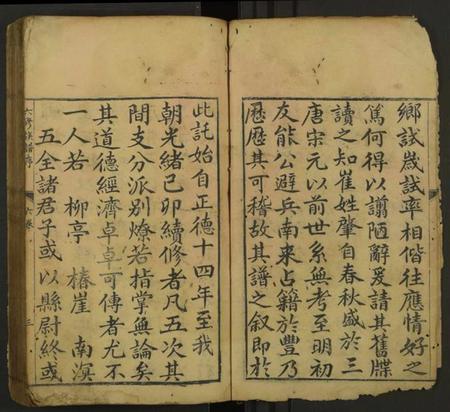 鄉試歲試率相偕往應情好之
篤何得以譾陋辭爰請其舊牒
讀之知崔姓肇自春秋盛於三
唐宋元以前世系無考至明初
友能公避兵南来占籍於豐乃
歷歷其可稽故其譜之叙即於
此託始自正德十四年至我
朝光緒己卯續修者凡五次其
間支分派別燎若指掌無論矣
其道德經濟卓卓可傳者尤不
一人若 柳亭 椿崖 南溟
五全諸君子或以縣尉終或
六卷
三